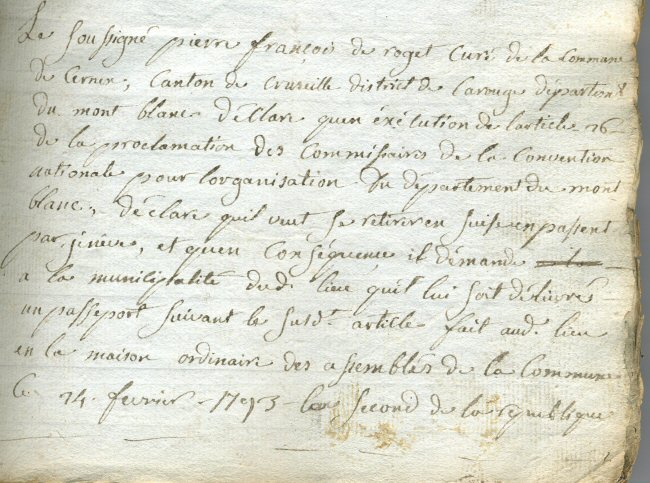 Le soussigné pierre françois de roget Curé de la Commune
de Cernex; Canton de Cruseille district de Carouge départemt
du mont blanc déclare quen éxécution de larticle 26
de la proclamation des Commissaires de la Convention
nationale pour lorganisation du département du mont
blanc, déclare quil veut se retirer en suise en passent
par jenève, et quen Conséquence il démande
a la municipalité dudt lieu quil lui soit délivré
un passeport suivant le susdt article fait audt lieu
en la maison ordinaire des assemblés de la Commune
Ce 24 fevrier 1793 lan second de la république